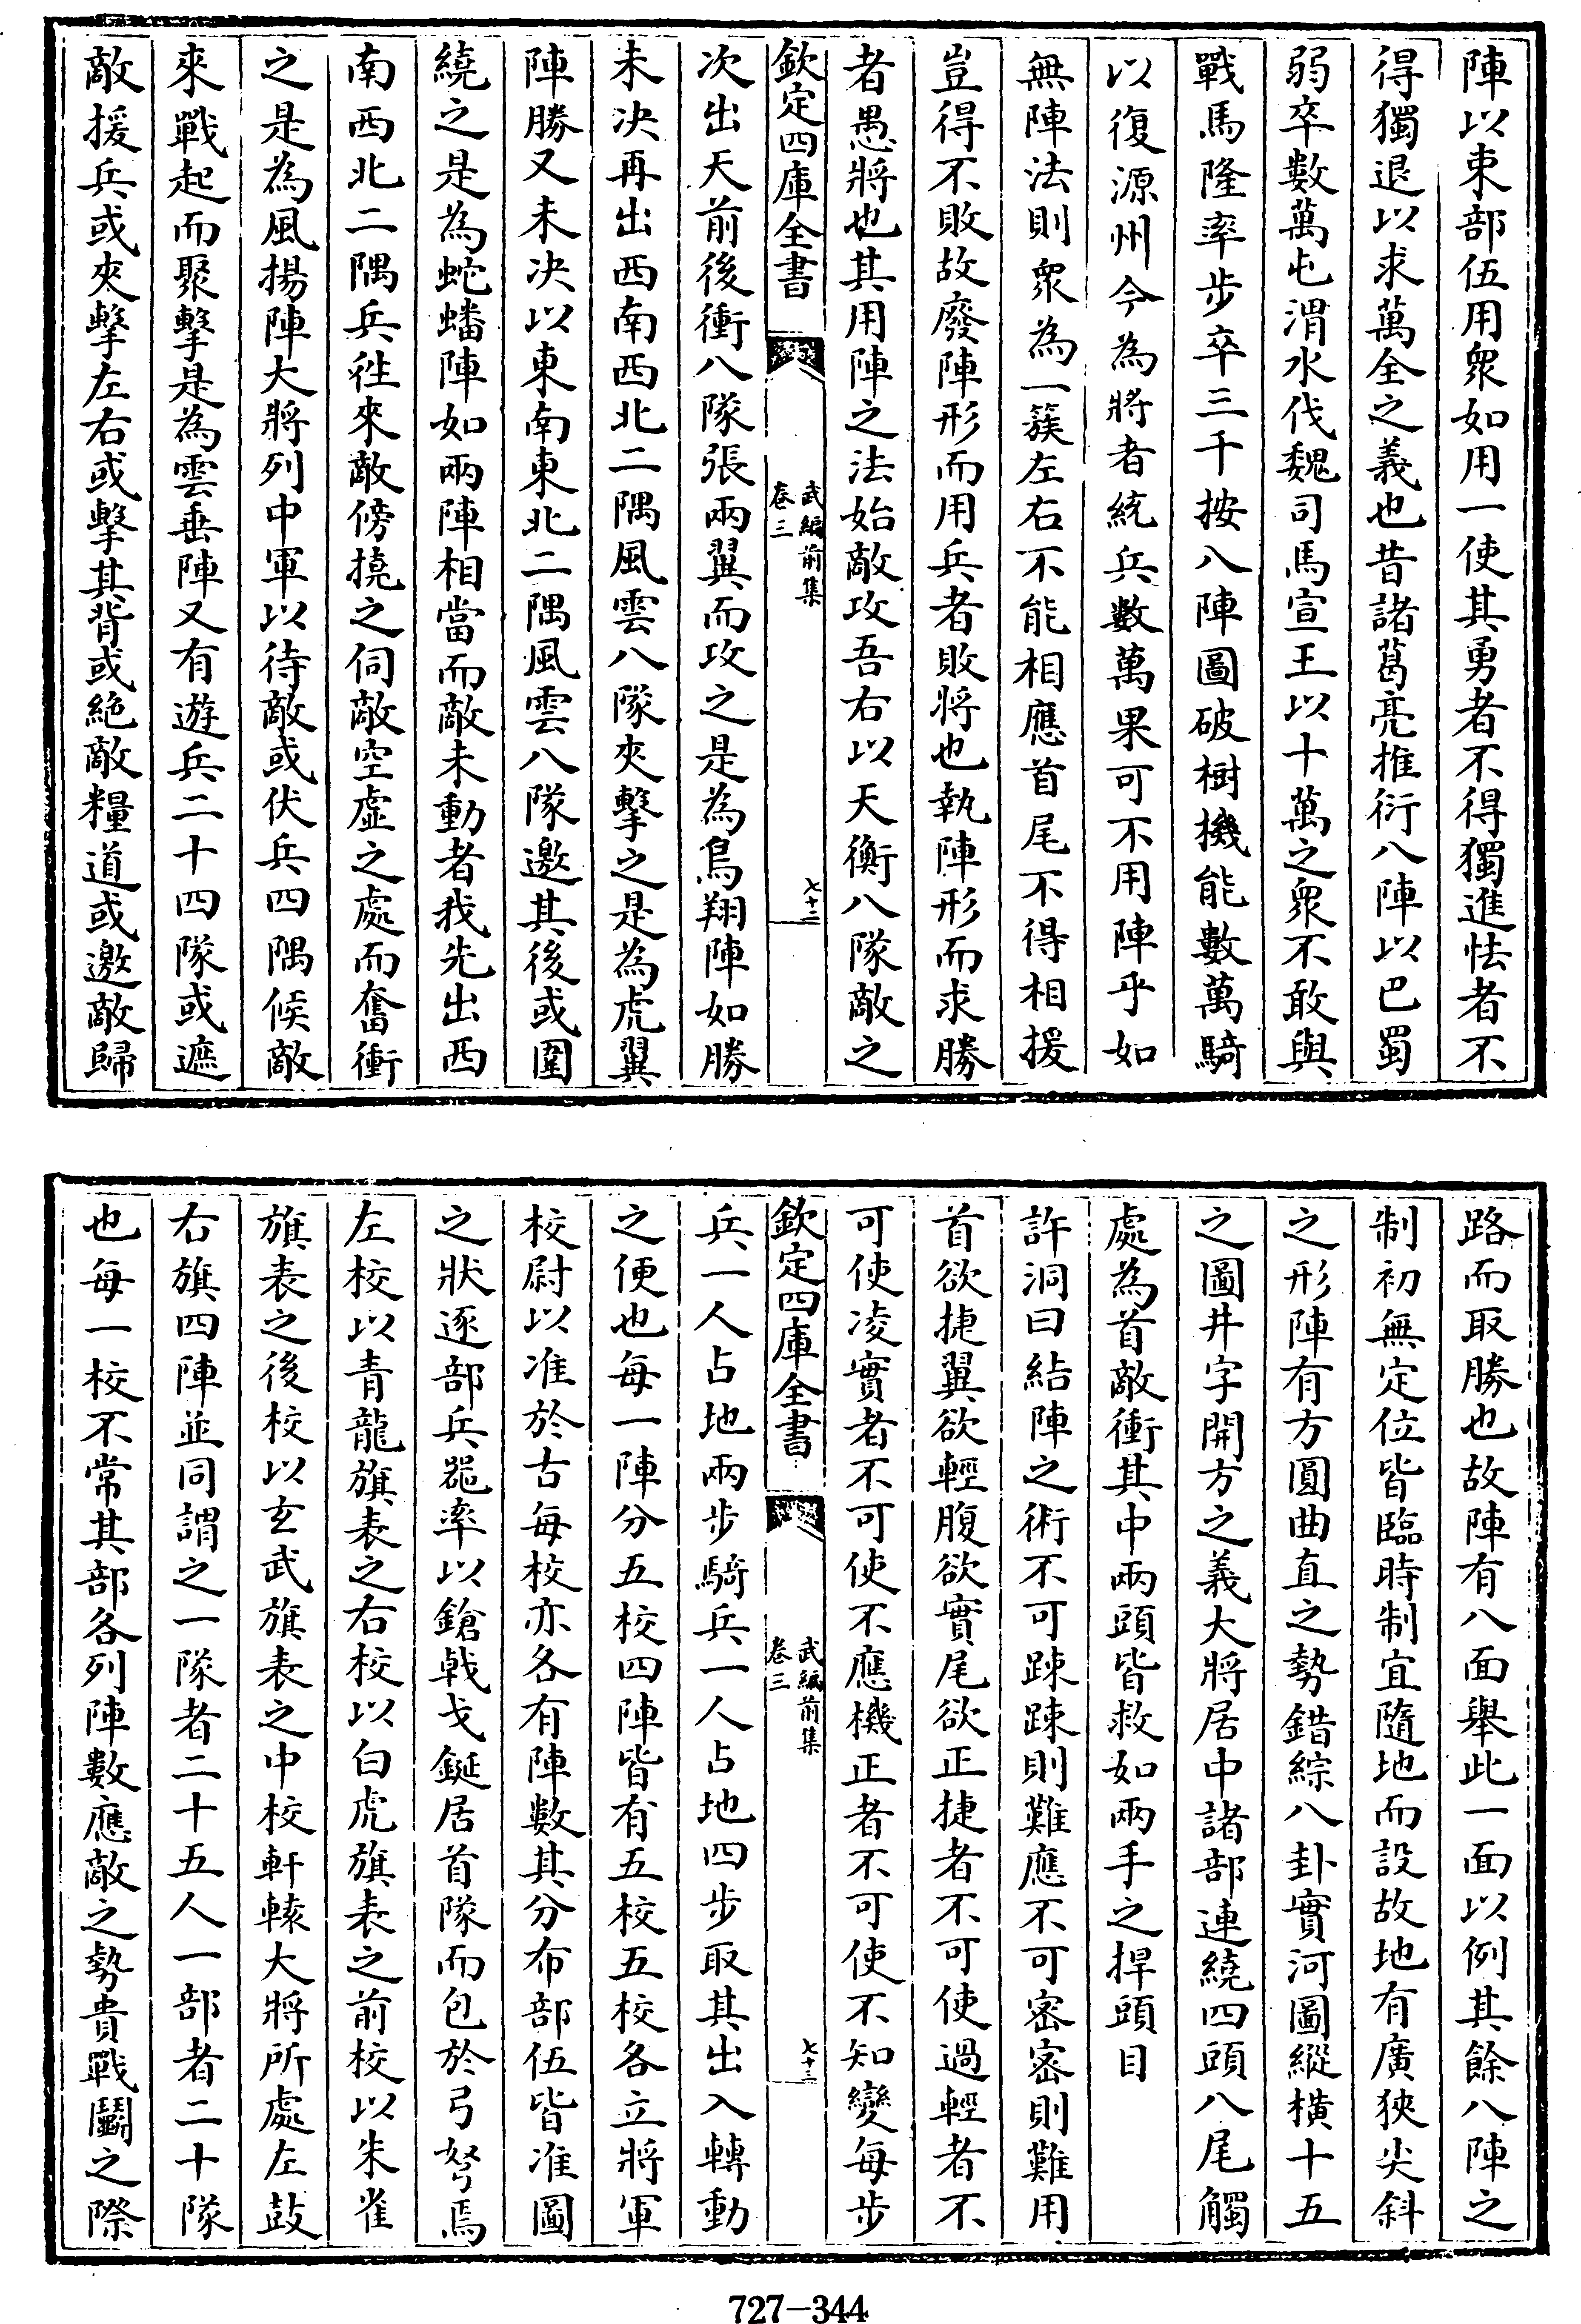 陣以束部伍用衆如用一使其勇者不得獨進怯者不
得獨退以求萬全之義也昔諸葛亮推衍八陣以巴蜀
弱卒數萬屯渭水伐魏司馬宣王以十萬之衆不敢與
戰馬隆率步卒三千按八陣圖破樹機能數萬騎
以復源州今為將者統兵數萬果可不用陣乎如
無陣法則衆為一簇左右不能相應首尾不得相援
豈得不敗故廢陣形而用兵者敗將也執陣形而求勝
者愚將也其用陣之法始敵攻吾右以天衡八隊敵之
欽定四庫全書
武編前集
卷三
七十二
次出天前後衝八隊張兩翼而攻之是為鳥翔陣如勝
未决再出西南西北二隅風雲八隊夾擊之是為虎翼
陣勝又未决以東南東北二隅風雲八隊邀其後或圍
繞之是為蛇蟠陣如兩陣相當而敵未動者我先出西
南西北二隅兵徃來敵傍撓之伺敵空虛之處而奮衝
之是為風揚陣大將列中軍以待敵或伏兵四隅候敵
來戰起而聚擊是為雲垂陣又有遊兵二十四隊或遮
敵援兵或夾擊左右或擊其背或絕敵糧道或邀敵歸
路而取勝也故陣有八面舉此一面以例其餘八陣之
制初無定位皆臨時制宜隨地而設故地有廣狹尖斜
之形陣有方圓曲直之勢錯綜八卦實河圖縱橫十五
之圖井字開方之義大將居中諸部連繞四頭八尾觸
處為首敵衝其中兩頭皆救如兩手之捍頭目
許洞曰結陣之術不可踈踈則難應不可密密則難用
首欲捷翼欲輕腹欲實尾欲正捷者不可使過輕者不
可使凌實者不可使不應機正者不可使不知變每步
欽定四庫全書
武編前集
卷三
七十三
兵一人占地兩步騎兵一人占地四步取其出入轉動
之便也每一陣分五校四陣皆有五校五校各立將軍
校尉以准於古每校亦各有陣數其分布部伍皆准圖
之狀逐部兵器率以鎗戟戈鋋居首隊而包於弓弩焉
左校以青龍旗表之右校以白虎旗表之前校以朱雀
旗表之後校以玄武旗表之中校軒轅大將所處左鼓
右旗四陣並同謂之一隊者二十五人一部者二十隊
也每一校不常其部各列陣數應敵之勢貴戰鬭之際
727-344